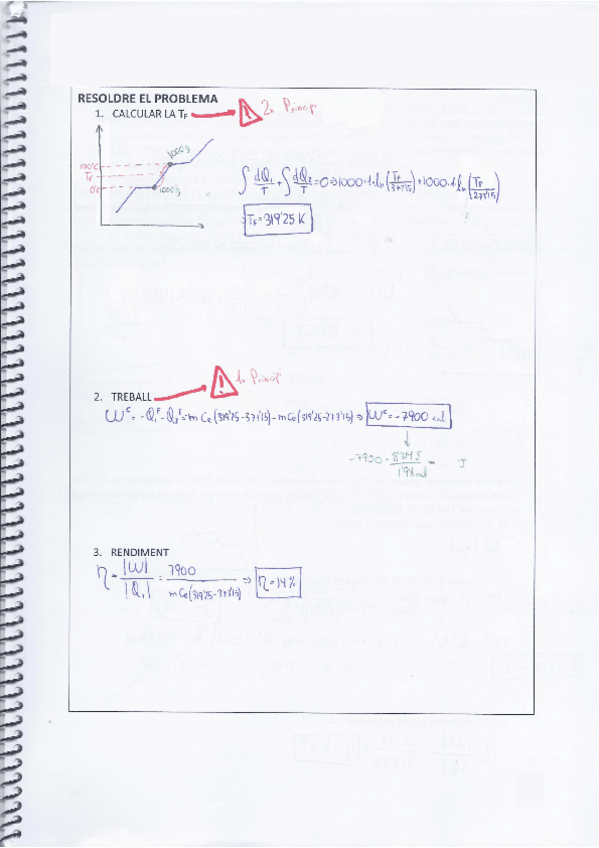 RESOLDRE EL PROBLEMA
1. CALCULAR LA T_F → ⚠ 2n Principi
1000g
100ºC
T_F
0ºC
1000g
∫ dQ₁/T + ∫ dQ₂/T = 0 ⇒ 1000·1·ln(T_F/373'15) + 1000·1·ln(T_F/273'15)
T_F = 319'25 K
⚠ 1r Principi
2. TREBALL
W^c = -Q₁^F - Q₂^F = m Ce (319'25-373'15) - m Ce (319'25-273'15) ⇒ W^c = -7900 cal
-7900 · 8'314 J / 1'98 cal = ... J
3. RENDIMENT
η = |W| / |Q₁| = 7900 / m Ce (319'25-373'15) ⇒ η = 14%